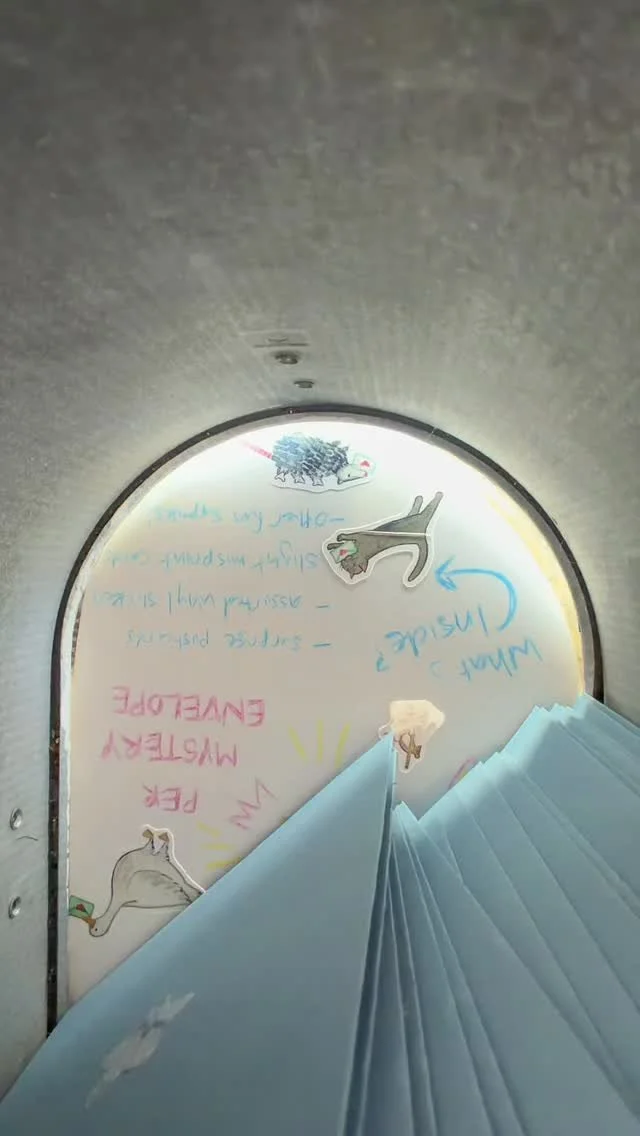 PER
MYSTERY
ENVELOPE
What's
Inside?
- surprise postcards
- assorted vinyl sticker
slight misprint card
- other fun surprises